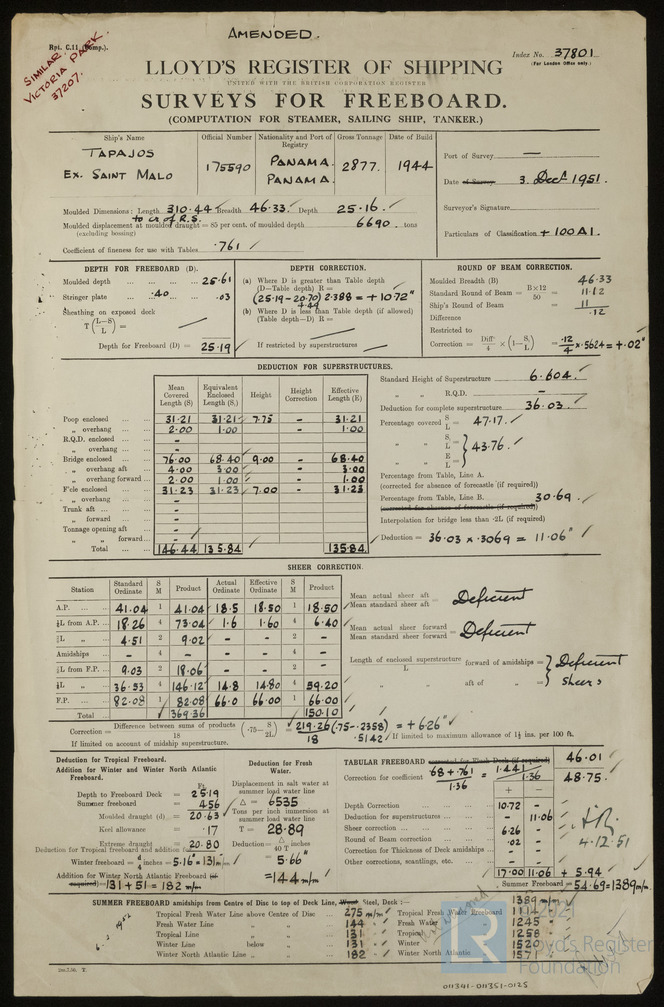 AMENDED.
Rpt. C.11. (Comp.).
SIMILAR
VICTORIA PARK.
37207.
Index No. 37801
(For London Office only.)
LLOYD'S REGISTER OF SHIPPING
UNITED WITH THE BRITISH CORPORATION REGISTER
SURVEYS FOR FREEBOARD.
(COMPUTATION FOR STEAMER, SAILING SHIP, TANKER.)
Ship's Name Official Number Nationality and Port of Registry Gross Tonnage Date of Build
TAPAJOS
EX. SAINT MALO 175590 PANAMA. PANAMA. 2877. 1944
Port of Survey —
Date of Survey 3. Dec. 1951.
Surveyor's Signature
Particulars of Classification +100A1.
Moulded Dimensions: Length 310.44 Breadth 46.33. Depth 25.16.
to cr of R.S.
Moulded displacement at moulded draught = 85 per cent. of moulded depth 6690 tons
(excluding bossing)
Coefficient of fineness for use with Tables .761
DEPTH FOR FREEBOARD (D).
Moulded depth ... ... ... 25.61
Stringer plate ... .40 ... .03
Sheathing on exposed deck
T (L−S / L) =
Depth for Freeboard (D) = 25.19
DEPTH CORRECTION.
(a) Where D is greater than Table depth
(D−Table depth) R =
(25.19−20.70) 2.388 = +10.72"
4.49
(b) Where D is less than Table depth (if allowed)
(Table depth−D) R =
If restricted by superstructures
ROUND OF BEAM CORRECTION.
Moulded Breadth (B) 46.33
Standard Round of Beam = B×12 / 50 = 11.12
Ship's Round of Beam = 11
Difference .12
Restricted to
Correction = Diffce / 4 × (1−S₁ / L) = .12 / 4 × .5624 = +.02"
DEDUCTION FOR SUPERSTRUCTURES.
Mean Covered Length (S) Equivalent Enclosed Length (S₁) Height Height Correction Effective Length (E)
Poop enclosed ... 31.21 31.21 7.75 - 31.21
„ overhang ... 2.00 1.00 1.00
R.Q.D. enclosed ... -
„ overhang ... -
Bridge enclosed ... 76.00 68.40 9.00 - 68.40
„ overhang aft 4.00 3.00 3.00
„ overhang forward 2.00 1.00 1.00
F'cle enclosed ... 31.23 31.23 7.00 - 31.23
„ overhang ... -
Trunk aft ... -
„ forward ... -
Tonnage opening aft -
„ „ forward... -
Total ... 146.44 135.84 135.84
Standard Height of Superstructure 6.604.
„ „ R.Q.D. —
Deduction for complete superstructure 36.03.
Percentage covered S / L = 47.17.
„ „ S₁ / L =
„ „ E / L = } 43.76.
Percentage from Table, Line A.
(corrected for absence of forecastle (if required))
Percentage from Table, Line B. 30.69.
(corrected for absence of forecastle (if required))
Interpolation for bridge less than .2L (if required)
Deduction = 36.03 × .3069 = 11.06"
SHEER CORRECTION.
Station Standard Ordinate S M Product Actual Ordinate Effective Ordinate S M Product
A.P. ... ... 41.04 1 41.04 18.5 18.50 1 18.50
⅙L from A.P. ... 18.26 4 73.04 1.6 1.60 4 6.40
⅓L „ 4.51 2 9.02 - - 2 -
Amidships ... - 4 - - - 4 -
⅓L from F.P. ... 9.03 2 18.06 - - 2 -
⅙L „ 36.53 4 146.12 14.8 14.80 4 59.20
F.P. ... ... 82.08 1 82.08 66.0 66.00 1 66.00
Total ... 369.36 150.10
Mean actual sheer aft
Mean standard sheer aft = Deficient
Mean actual sheer forward
Mean standard sheer forward = Deficient
Length of enclosed superstructure / L forward of amidships =
„ „ aft of „ = } Deficient sheers
Correction = Difference between sums of products / 18 (.75− S / 2L) = 219.26 / 18 (.75−.2358) = +6.26"
.5142
If limited on account of midship superstructure.
If limited to maximum allowance of 1½ ins. per 100 ft.
Deduction for Tropical Freeboard.
Addition for Winter and Winter North Atlantic Freeboard.
Ft.
Depth to Freeboard Deck = 25.19
Summer freeboard = 4.56
Moulded draught (d) = 20.63
Keel allowance = .17
Extreme draught = 20.80
Deduction for Tropical freeboard and addition for
Winter freeboard = d / 4 inches = 5.16" = 131 m/m
Addition for Winter North Atlantic Freeboard (if required) = 131 + 51 = 182 m/m
Deduction for Fresh Water.
Displacement in salt water at summer load water line
Δ = 6535
Tons per inch immersion at summer load water line
T = 28.89
Deduction = Δ / 40 T inches
= 5.66"
= 144 m/m
TABULAR FREEBOARD corrected for Flush Deck (if required) 46.01
Correction for coefficient .68 + .761 / 1.36 = 1.441 / 1.36 48.75.
+ −
Depth Correction 10.72 -
Deduction for superstructures - 11.06
Sheer correction 6.26 -
Round of Beam correction .02 -
Correction for Thickness of Deck amidships - -
Other corrections, scantlings, etc. - -
17.00 11.06 + 5.94
Summer Freeboard = 54.69 = 1389 m/m
4.12.51
SUMMER FREEBOARD amidships from Centre of Disc to top of Deck Line, Wood Steel, Deck:— 1389 m/m
Tropical Fresh Water Line above Centre of Disc ... 275 m/m
Fresh Water Line „ „ 144
Tropical Line „ „ 131
Winter Line below „ 131
Winter North Atlantic Line „ „ 182
Tropical Fresh Water Freeboard
Fresh Water „ 1245
Tropical „ 1258
Winter „ 1520
Winter North Atlantic „ 1571
2m.7.50. T.
Lloyd's Register
Foundation
011341-011351-0125